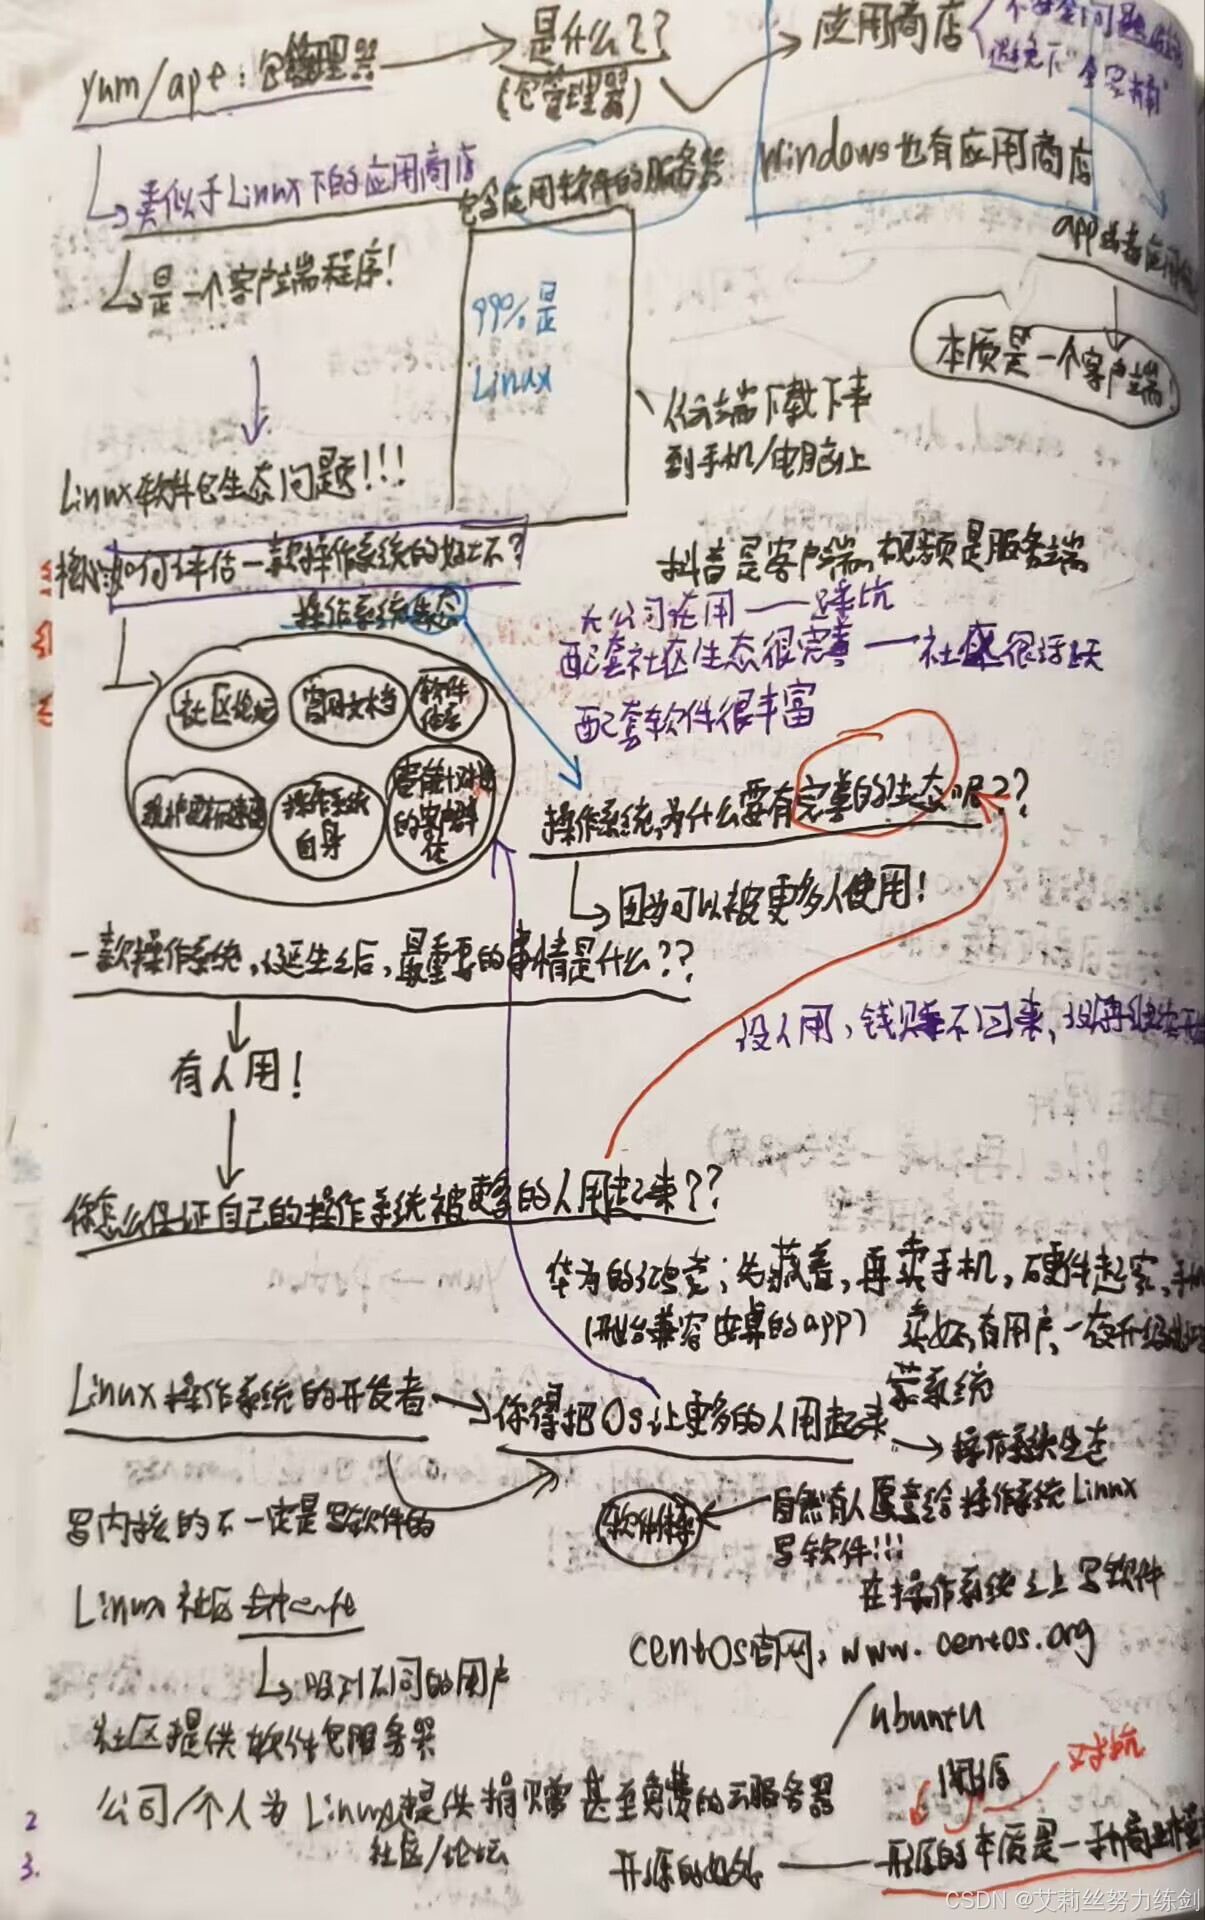 yum/apt：包管理器
是什么？？
（包管理器）
应用商店
不安全问题
避免下"全家桶"
类似于Linux下的应用商店
包含应用软件的服务器
Windows也有应用商店
是一个客户端程序！
99%是
Linux
app或者应用
本质是一个客户端
下载下来
到手机/电脑上
Linux软件包生态问题！！！
抖音是客户端，视频是服务端
核心：如何评估一款操作系统的好坏？
操作系统生态
大公司在用——踩坑
配套社区生态很完善——社区很活跃
配套软件很丰富
社区论坛
官网文档
软件体系
维护更新速度
操作系统
自身
的客户群
体
操作系统，为什么要有完善的生态呢？？
因为可以被更多人使用！
一款操作系统，诞生之后，最重要的事情是什么？？
没人用，钱赚不回来，没法再继续
有人用！
你怎么保证自己的操作系统被更多的人用起来？？
华为的鸿蒙；先藏着，再卖手机，硬件起家，手机
（刚开始兼容安卓的app）
卖好，有用户，一夜升级
蒙系统
Linux操作系统的开发者
你得把OS让更多的人用起来
操作系统生态
写内核的不一定是写软件的
软件体系
自然有人愿意给操作系统Linux
写软件！！！
在操作系统之上写软件
Linux社区
centos官网：www.centos.org
吸引不同的用户
ubuntu
社区提供软件包服务器
闭源
对抗
公司/个人为Linux提供捐赠甚至免费的云服务器
社区/论坛
2
3.
开源的好处
开源的本质是一种商业模
CSDN @艾莉丝努力练剑